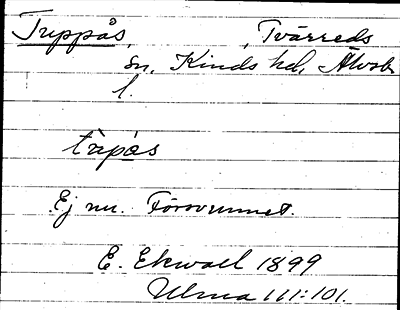 Truppås, , Tvärreds
sn. Kinds hd, Älvsb.
l.
tràpǻs
Ej nu. Försvunnet.
E. Ekwall 1899
Ulma 111:101.